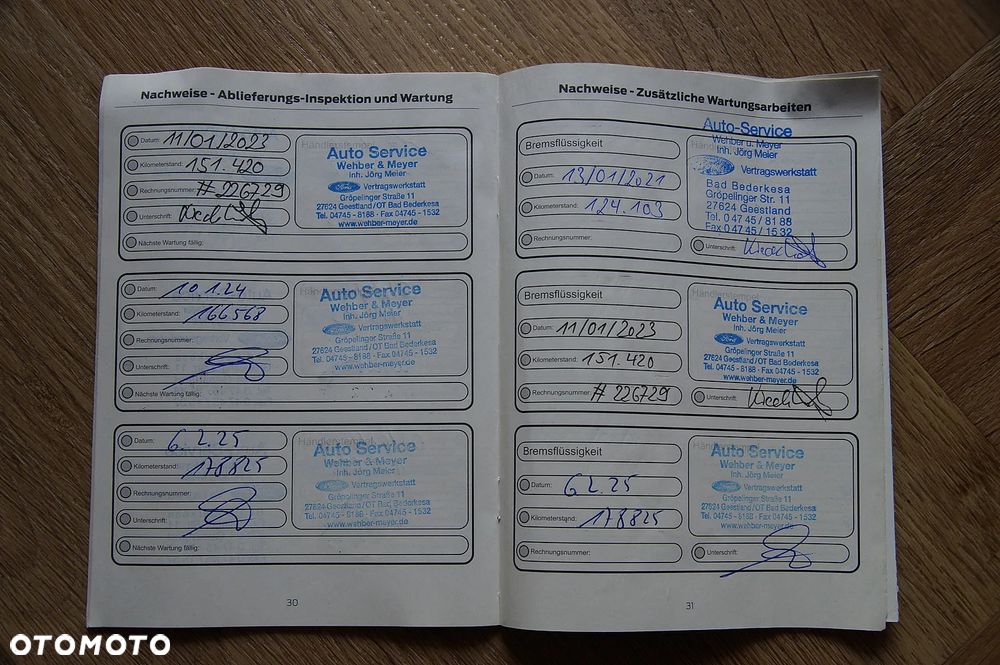 Nachweise - Ablieferungs-Inspektion und Wartung
Datum: 11/01/2023
Kilometerstand: 151.420
Rechnungsnummer: # 226729
Unterschrift:
Nächste Wartung fällig:
Händlerstempel
Auto Service
Wehber & Meyer
Inh. Jörg Meier
Ford Vertragswerkstatt
Gröpelinger Straße 11
27624 Geestland/OT Bad Bederkesa
Tel. 04745 - 8188 · Fax 04745 - 1532
www.wehber-meyer.de
Datum: 10.1.24
Kilometerstand: 166568
Rechnungsnummer:
Unterschrift:
Nächste Wartung fällig:
Händlerstempel
Auto Service
Wehber & Meyer
Inh. Jörg Meier
Ford Vertragswerkstatt
Gröpelinger Straße 11
27624 Geestland/OT Bad Bederkesa
Tel. 04745 - 8188 · Fax 04745 - 1532
www.wehber-meyer.de
Datum: 6.2.25
Kilometerstand: 178825
Rechnungsnummer:
Unterschrift:
Nächste Wartung fällig:
Händlerstempel
Auto Service
Wehber & Meyer
Inh. Jörg Meier
Ford Vertragswerkstatt
Gröpelinger Straße 11
27624 Geestland/OT Bad Bederkesa
Tel. 04745 - 8188 · Fax 04745 - 1532
www.wehber-meyer.de
30
Nachweise - Zusätzliche Wartungsarbeiten
Bremsflüssigkeit
Datum: 13/01/2021
Kilometerstand: 124.103
Rechnungsnummer:
Auto-Service
Wehber u. Meyer
Inh. Jörg Meier
Vertragswerkstatt
Bad Bederkesa
Gröpelinger Str. 11
27624 Geestland
Tel. 0 47 45 / 81 88
Fax 0 47 45 / 15 32
Unterschrift:
Bremsflüssigkeit
Datum: 11/01/2023
Kilometerstand: 151.420
Rechnungsnummer: # 226729
Händlerstempel
Auto Service
Wehber & Meyer
Inh. Jörg Meier
Ford Vertragswerkstatt
Gröpelinger Straße 11
27624 Geestland/OT Bad Bederkesa
Tel. 04745 - 8188 · Fax 04745 - 1532
www.wehber-meyer.de
Unterschrift:
Bremsflüssigkeit
Datum: 6.2.25
Kilometerstand: 178825
Rechnungsnummer:
Händlerstempel
Auto Service
Wehber & Meyer
Inh. Jörg Meier
Ford Vertragswerkstatt
Gröpelinger Straße 11
27624 Geestland/OT Bad Bederkesa
Tel. 04745 - 8188 · Fax 04745 - 1532
www.wehber-meyer.de
Unterschrift:
31
OTOMOTO